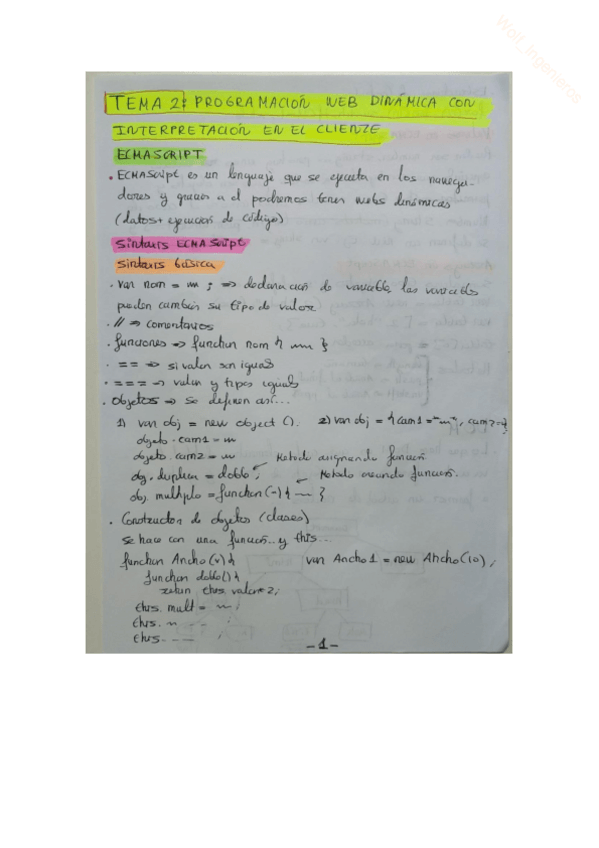 Wolf_Ingenieros
TEMA 2: PROGRAMACIÓN WEB DINÁMICA CON
INTERPRETACIÓN EN EL CLIENTE
ECMASCRIPT
• ECMAScript es un lenguaje que se ejecuta en los navega-
dores y gracias a el podremos tener webs dinámicas
(datos + ejecución de código)
Sintaxis ECMAScript
Sintaxis básica
• var nom = m; => declaración de variable, las variables
pueden cambiar su tipo de valor
• // => comentarios
• funciones => function nom { }
• == => si valen son iguales
• === => valor y tipos iguales
• Objetos => Se definen así...
1) var obj = new object(). 2) var obj = {cam1="m", cam2=
objeto.cam1 = m
objeto.cam2 = m Metodo asignando función
obj.duplica = doble; Metodo creando función.
obj.multiplo = function(~) { }
• Constructor de objetos (clases)
Se hace con una función.. y this...
function Ancho(v) { var Ancho1 = new Ancho(10);
function doble() {
return this.valor*2;
this.mult = ;
this. ;
this. ;
-1-